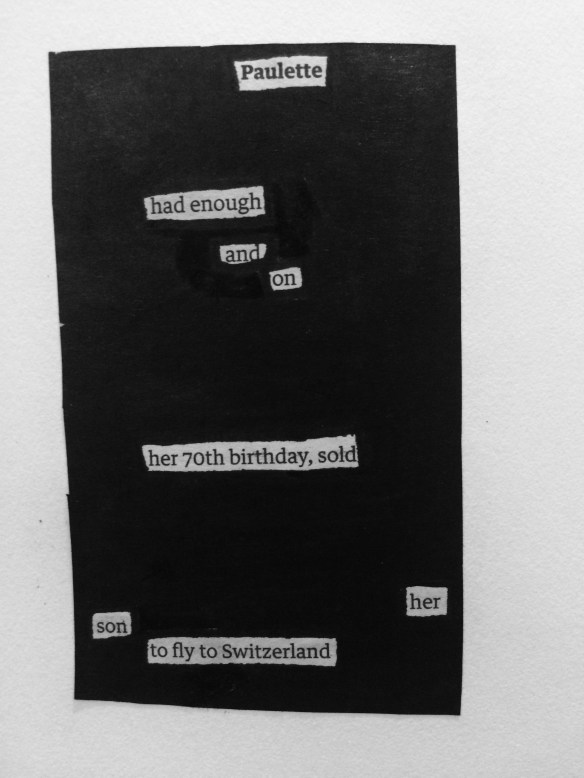 Paulette
had enough
and
on
her 70th birthday, sold
her
son
to fly to Switzerland